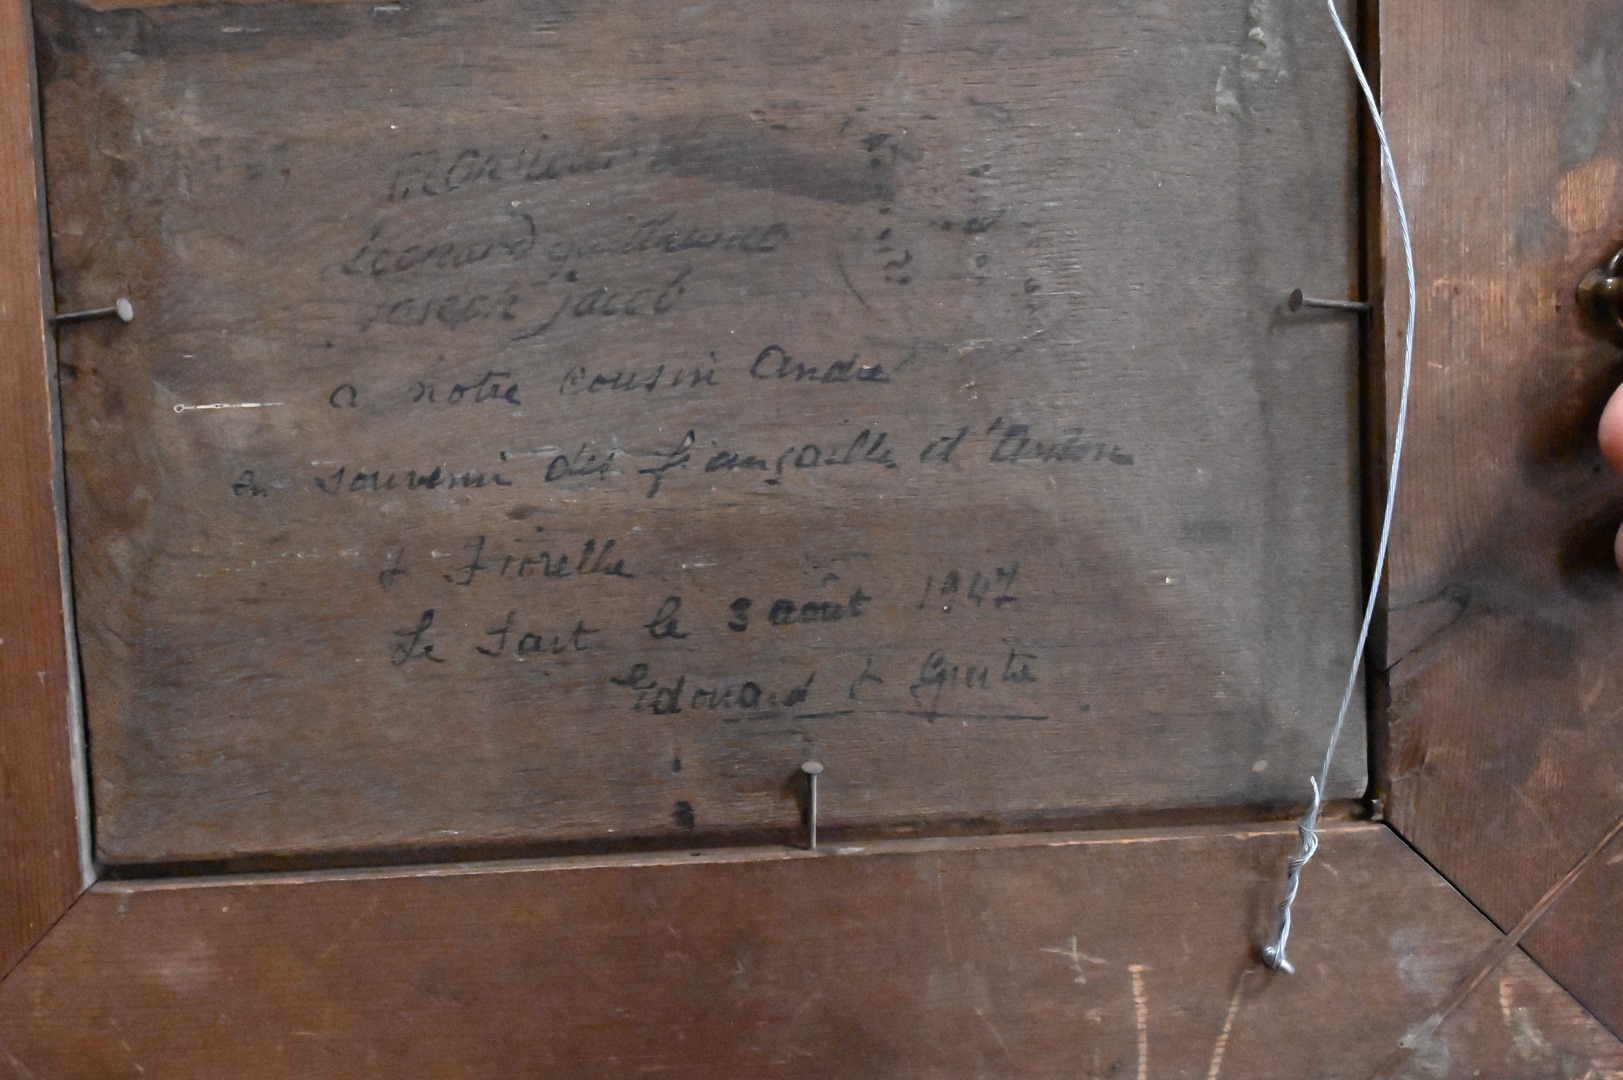 Monsieur
Leonard guillaume
Joseph Jacob
a notre cousin André
en souvenir des fiançaille d'Anton
& Fiorella
Le Sart le 3 août 1947
Edouard & Guite